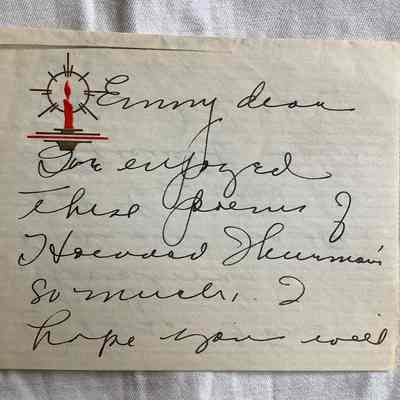 Emmy dear
I've enjoyed
these poems of
Howard Thurman's
so much, I
hope you will